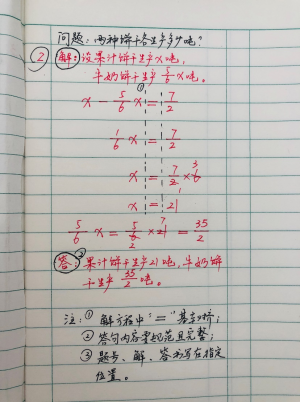 问题：两种饼干各生产多少吨？
② 解：设果汁饼干生产x吨，
牛奶饼干生产5/6x吨。
①
x - 5/6x = 7/2
1/6x = 7/2
x = 7/2 × 6 3
1
x = 21
5/6x = 5/6 × 21 = 35/2
2 7
② 答：果汁饼干生产21吨，牛奶饼
干生产35/2吨。
注：① 解方程中“=”要对齐；
② 答句内容要规范且完整；
③ 题号、解、答书写在指定
位置。